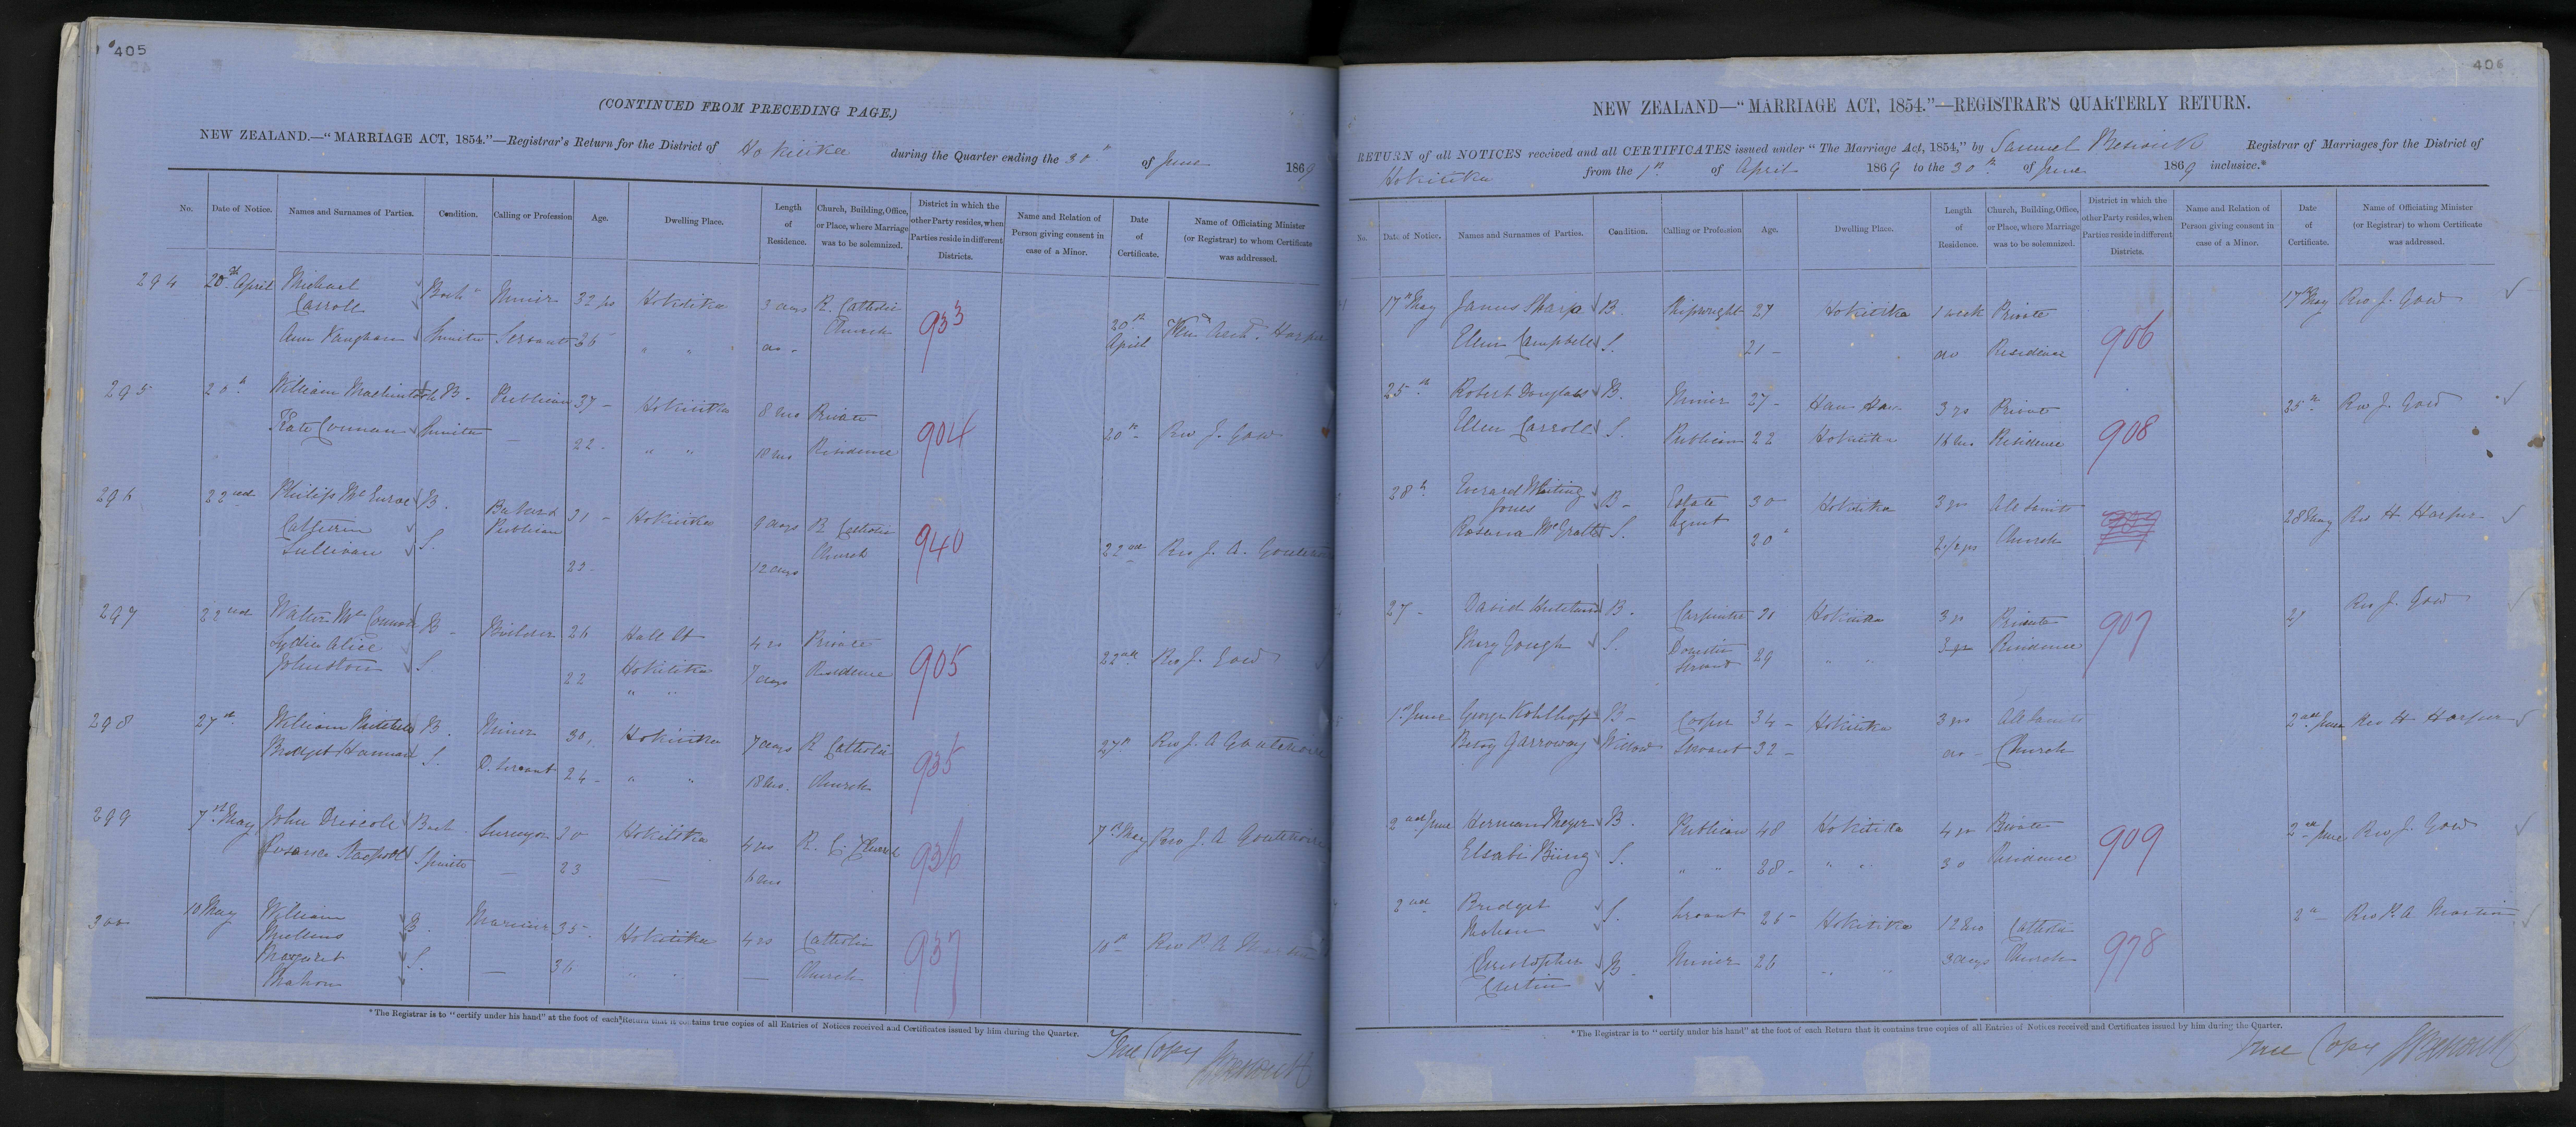 405
(CONTINUED FROM PRECEDING PAGE.)
NEW ZEALAND.—"MARRIAGE ACT, 1854."—Registrar's Return for the District of Hokitika during the Quarter ending the 30th of June 1869
No. Date of Notice. Names and Surnames of Parties. Condition. Calling or Profession Age. Dwelling Place. Length of Residence. Church, Building, Office, or Place, where Marriage was to be solemnized. District in which the other Party resides, when Parties reside in different Districts. Name and Relation of Person giving consent in case of a Minor. Date of Certificate. Name of Officiating Minister (or Registrar) to whom Certificate was addressed.
294 20th April Michael Carroll Bach Miner 32 yrs Hokitika 3 days R. Catholic Church 933 20th April
Ann Vaughan Spinster Servant 26 " " do
295 20th William Mackintosh B. Publican 37 Hokitika 8 mos Private Residence 904 20th Rev J. Gow
Kate Spinster — 22 " " 18 mos
296 22nd Philip B. Publican 31 Hokitika 9 days R Catholic Church 940 22nd Rev J. A.
Catherine Sullivan S. 22 12 days
297 22nd Walter B Builder 26 Hall St Hokitika 4 yrs Private Residence 905 22nd Rev J. Gow
Lydia Alice Johnston S. 22 " " 7 days
298 27th William Mitchell B. Miner 30 Hokitika 7 days R Catholic Church 935 27th Rev J. A
Bridget Hannan S. D. Servant 24 " " 18 mos
299 7th May John Driscoll Bach Surveyor 30 Hokitika 4 yrs R. C. Church 936 7th May Rev J. A
Spinster — 23 — 6 mos
300 10 May William Mullens B. Mariner 35 Hokitika 4 yrs Catholic Church 937 10th Rev P. A
Margaret Mahon S. — 36 " " —
*The Registrar is to "certify under his hand" at the foot of each Return that it contains true copies of all Entries of Notices received and Certificates issued by him during the Quarter.
True Copy
406
NEW ZEALAND—"MARRIAGE ACT, 1854."—REGISTRAR'S QUARTERLY RETURN.
RETURN of all NOTICES received and all CERTIFICATES issued under "The Marriage Act, 1854," by Samuel Registrar of Marriages for the District of
Hokitika from the 1st of April 1869 to the 30th of June 1869 inclusive.*
No. Date of Notice. Names and Surnames of Parties. Condition. Calling or Profession Age. Dwelling Place. Length of Residence. Church, Building, Office, or Place, where Marriage was to be solemnized. District in which the other Party resides, when Parties reside in different Districts. Name and Relation of Person giving consent in case of a Minor. Date of Certificate. Name of Officiating Minister (or Registrar) to whom Certificate was addressed.
17th May James Sharp B. Shipwright 27 Hokitika 1 week Private Residence 906 17th May Rev. J. Gow
Ellen Campbell S. 21 do
25th Robert Douglass B. Miner 27 Hau Hau 3 yrs Private Residence 908 25th Rev J. Gow
Ellen Carroll S. Publican 22 Hokitika 18 mos
28th Everard Whiting Jones B Estate Agent 30 Hokitika 3 yrs All Saints Church 28 May Rev H Harper
Rosena McGrath S. 20 2½ yrs
27 David B. Carpenter 30 Hokitika 3 yrs Private Residence 907 27 Rev J. Gow
Mary Gough S. Domestic Servant 29 " " 3 yrs
1st June George Kohlhoff B Cooper 34 Hokitika 3 yrs All Saints Church 2nd June Rev H Harper
Betsy Garroway Widow Servant 32 do
2nd June Herman Meyer B. Publican 48 Hokitika 4 yrs Private Residence 909 2nd June Rev J. Gow
S. " " 28 " " 30
2nd Bridget S. Servant 26 Hokitika 12 mos Catholic Church 978 2nd Rev P. A Martin
Christopher Curtin B. Miner 26 " " 3 days
*The Registrar is to "certify under his hand" at the foot of each Return that it contains true copies of all Entries of Notices received and Certificates issued by him during the Quarter.
True Copy